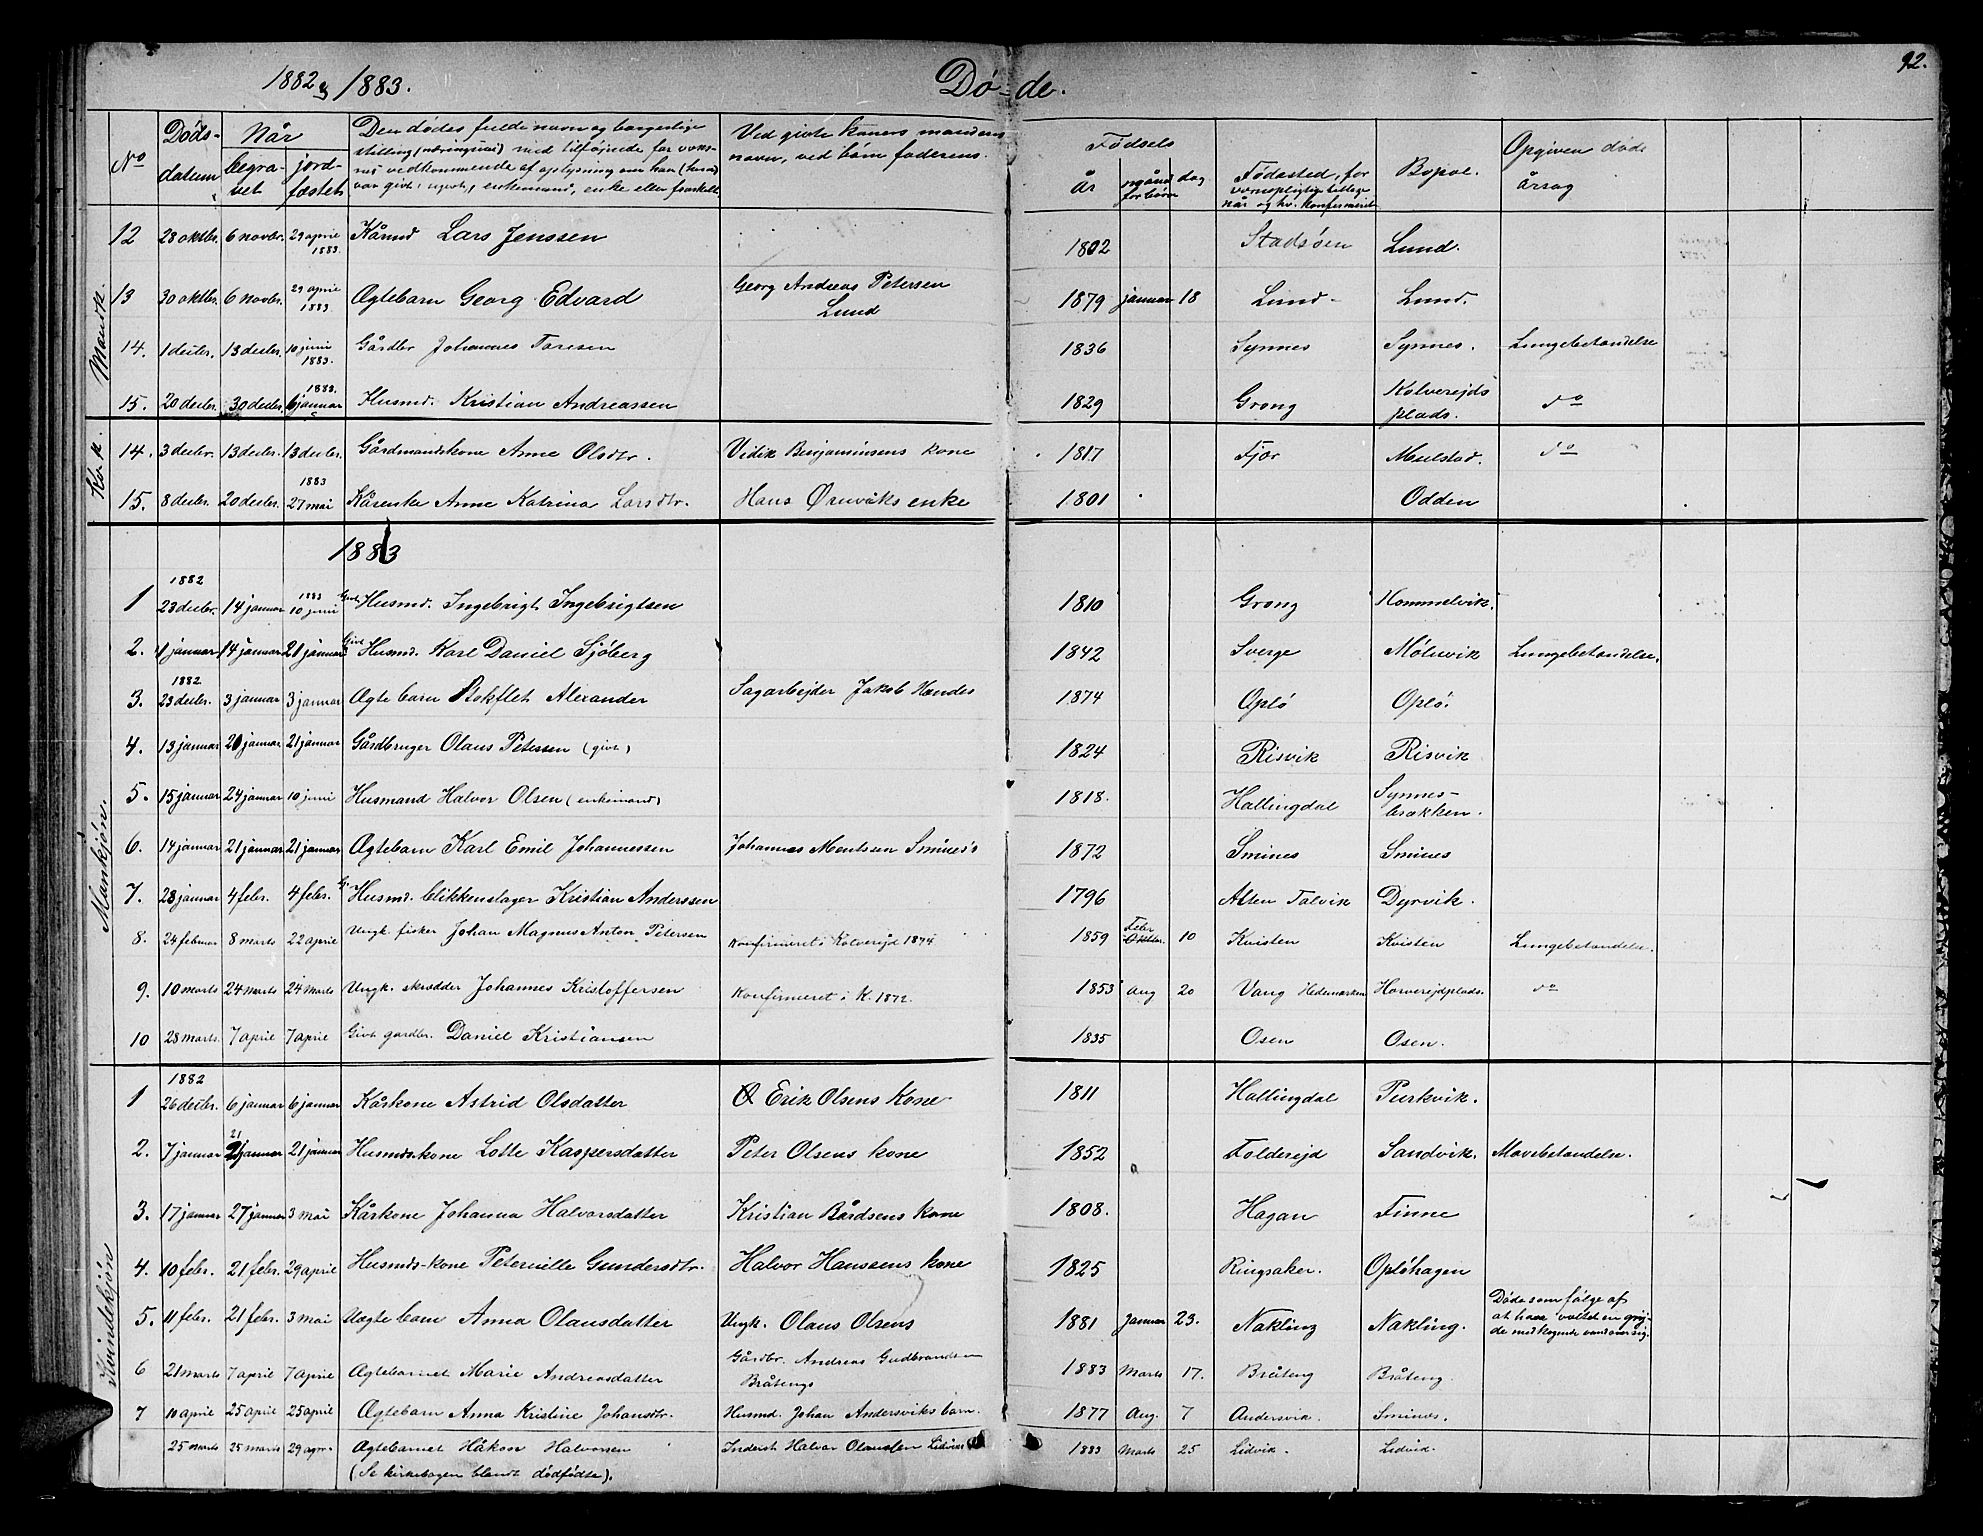 92.
1882 og 1883. Dø-de.
No Døds-datum Når begra-vet jord-fæstet Den dødes fulde navn og borgerlige stilling (næringsvei) med tilføjende for voks-nes vedkommende af oplysning om han (hun) var givt, ugivt, enkemand, enke eller fraskilt Ved givte koners mandens navn, ved børn faderens. Fødsels år måned for børn dag Fødested, for værnepligtige tillige når og hv. konfirmeret Bopæl. Opgiven døds årsag
Mandk.
12 28 oktbr. 6 novbr. 29 april 1883. Kårmd Lars Jenssen 1802 Stadsøen Lund.
13 30 oktbr. 6 novbr. 29 april 1883 Ægtebarn Georg Edvard Georg Andreas Petersen Lund 1879 januar 18 Lund- Lund.
14. 1 decbr. 13 decbr. 10 juni 1883. Gårdbr Johannes Taresen 1836 Synnes Synnes. Lungebetændelse
15. 20 decbr. 30 decbr. 1883. 6 januar Husmd. Kristian Andreassen 1829 Grong Kolverejds plads. do
Kv. k.
14. 3 decbr. 13 decbr. 13 decbr. Gårdmandskone Anne Olsdtr. Vidik Benjaminsens kone 1817 Fjær Meelstad. do
15. 8 decbr. 20 decbr. 1883 27 mai Kårenke Anne Katrina Larsdtr. Hans Ørnviks enke 1801 Odden
1883
Mankjøn.
1 1882 23 decbr. 14 januar 1883 10 juni Givt Husmd. Ingebrigt Ingebrigtsen 1810 Grong Hommelvik.
2. 1 januar 14 januar 21 januar Givt Husmd. Karl Daniel Sjøberg 1842 Sverge Mølnvik Lungebetændelse.
3. 1882 23 decbr. 3 januar 3 januar Ægtebarn Rokflet Alexander Sagarbejder Jakob Hændes 1874 Oplø Oplø.
4. 13 januar 21 januar 21 januar Gårdbruger Olaus Petersen (givt) 1824 Risvik Risvik
5. 15 januar 24 januar 10 juni Husmand Halvor Olsen (enkemand) 1818. Hallingdal Synnes-brækken.
6. 14 januar 21 januar 21 januar Ægtebarn Karl Emil Johannessen Johannes Mentssen Smines's 1872 Smines Smines
7. 28 januar 4 febr. 4 febr. G. Husmd. blikkenslager Kristian Anderssen 1796 Alten Talvik Dyrvik.
8. 24 februar 8 marts 22 april Ungk. fisker Johan Magnus Anton Petersen Konfirmeret i Kolverejd 1874 1859 Febr Oktbr. 10 Kvisten Kvisten Lungebetændelse.
9. 10 marts 24 marts 24 marts Ungk. skrædder Johannes Kristoffersen Konfirmeret i K. 1872. 1853 Aug 20 Vang Hedemarken Horverejdplads. do
10 28 marts 7 april 7 april Givt gardbr. Daniel Kristiansen 1835 Osen Osen.
Kvindekjøn
1 1882 26 decbr. 6 januar 6 januar Kårkone Astrid Olsdatter Erik Olsens kone 1811 Hallingdal Purkvik.
2. 7 januar 21 januar 21 januar Husmds-kone Lotte Kaspersdatter Peter Olsens kone 1852 Folderejd Sandvik. Mavebetændelse.
3. 17 januar 27 januar 3 mai Kårkone Johanna Halvorsdatter Kristian Bårdsens kone 1808. Hagan Finne
4. 10 febr. 21 febr. 29 april Husmds-kone Peternille Gundersdtr. Halvor Hanssens kone 1825 Ringsaker. Opløhagen
5. 11 febr. 21 febr. 3 mai Uægte barn Anna Olausdatter Ungk. Olaus Olsens 1881 Januar 23. Nakling Nakling. Døde som følge af at have væltet en gry-de med kogende vand over sig.
6 21 marts 7 april 7 april Ægtebarnet Marie Andreasdatter Gårdbr. Andreas Gudbrandsen Bråtengs 1883 Marts 17. Bråteng Bråteng.
7 10 april 25 april 25 april Ægtebarn Anna Kristine Johansdtr. Husmd. Johan Andersviks barn. 1877 Aug. 7 Andersvik. Smines.
25 marts 25 marts 29 apr. Ægtebarnet Håkon Halvorsen Inderst Halvor Olaussen Lidvik 1883 Marts 25 Lidvik. Lidvik.
(Se kirkebogen blandt dødfødte).